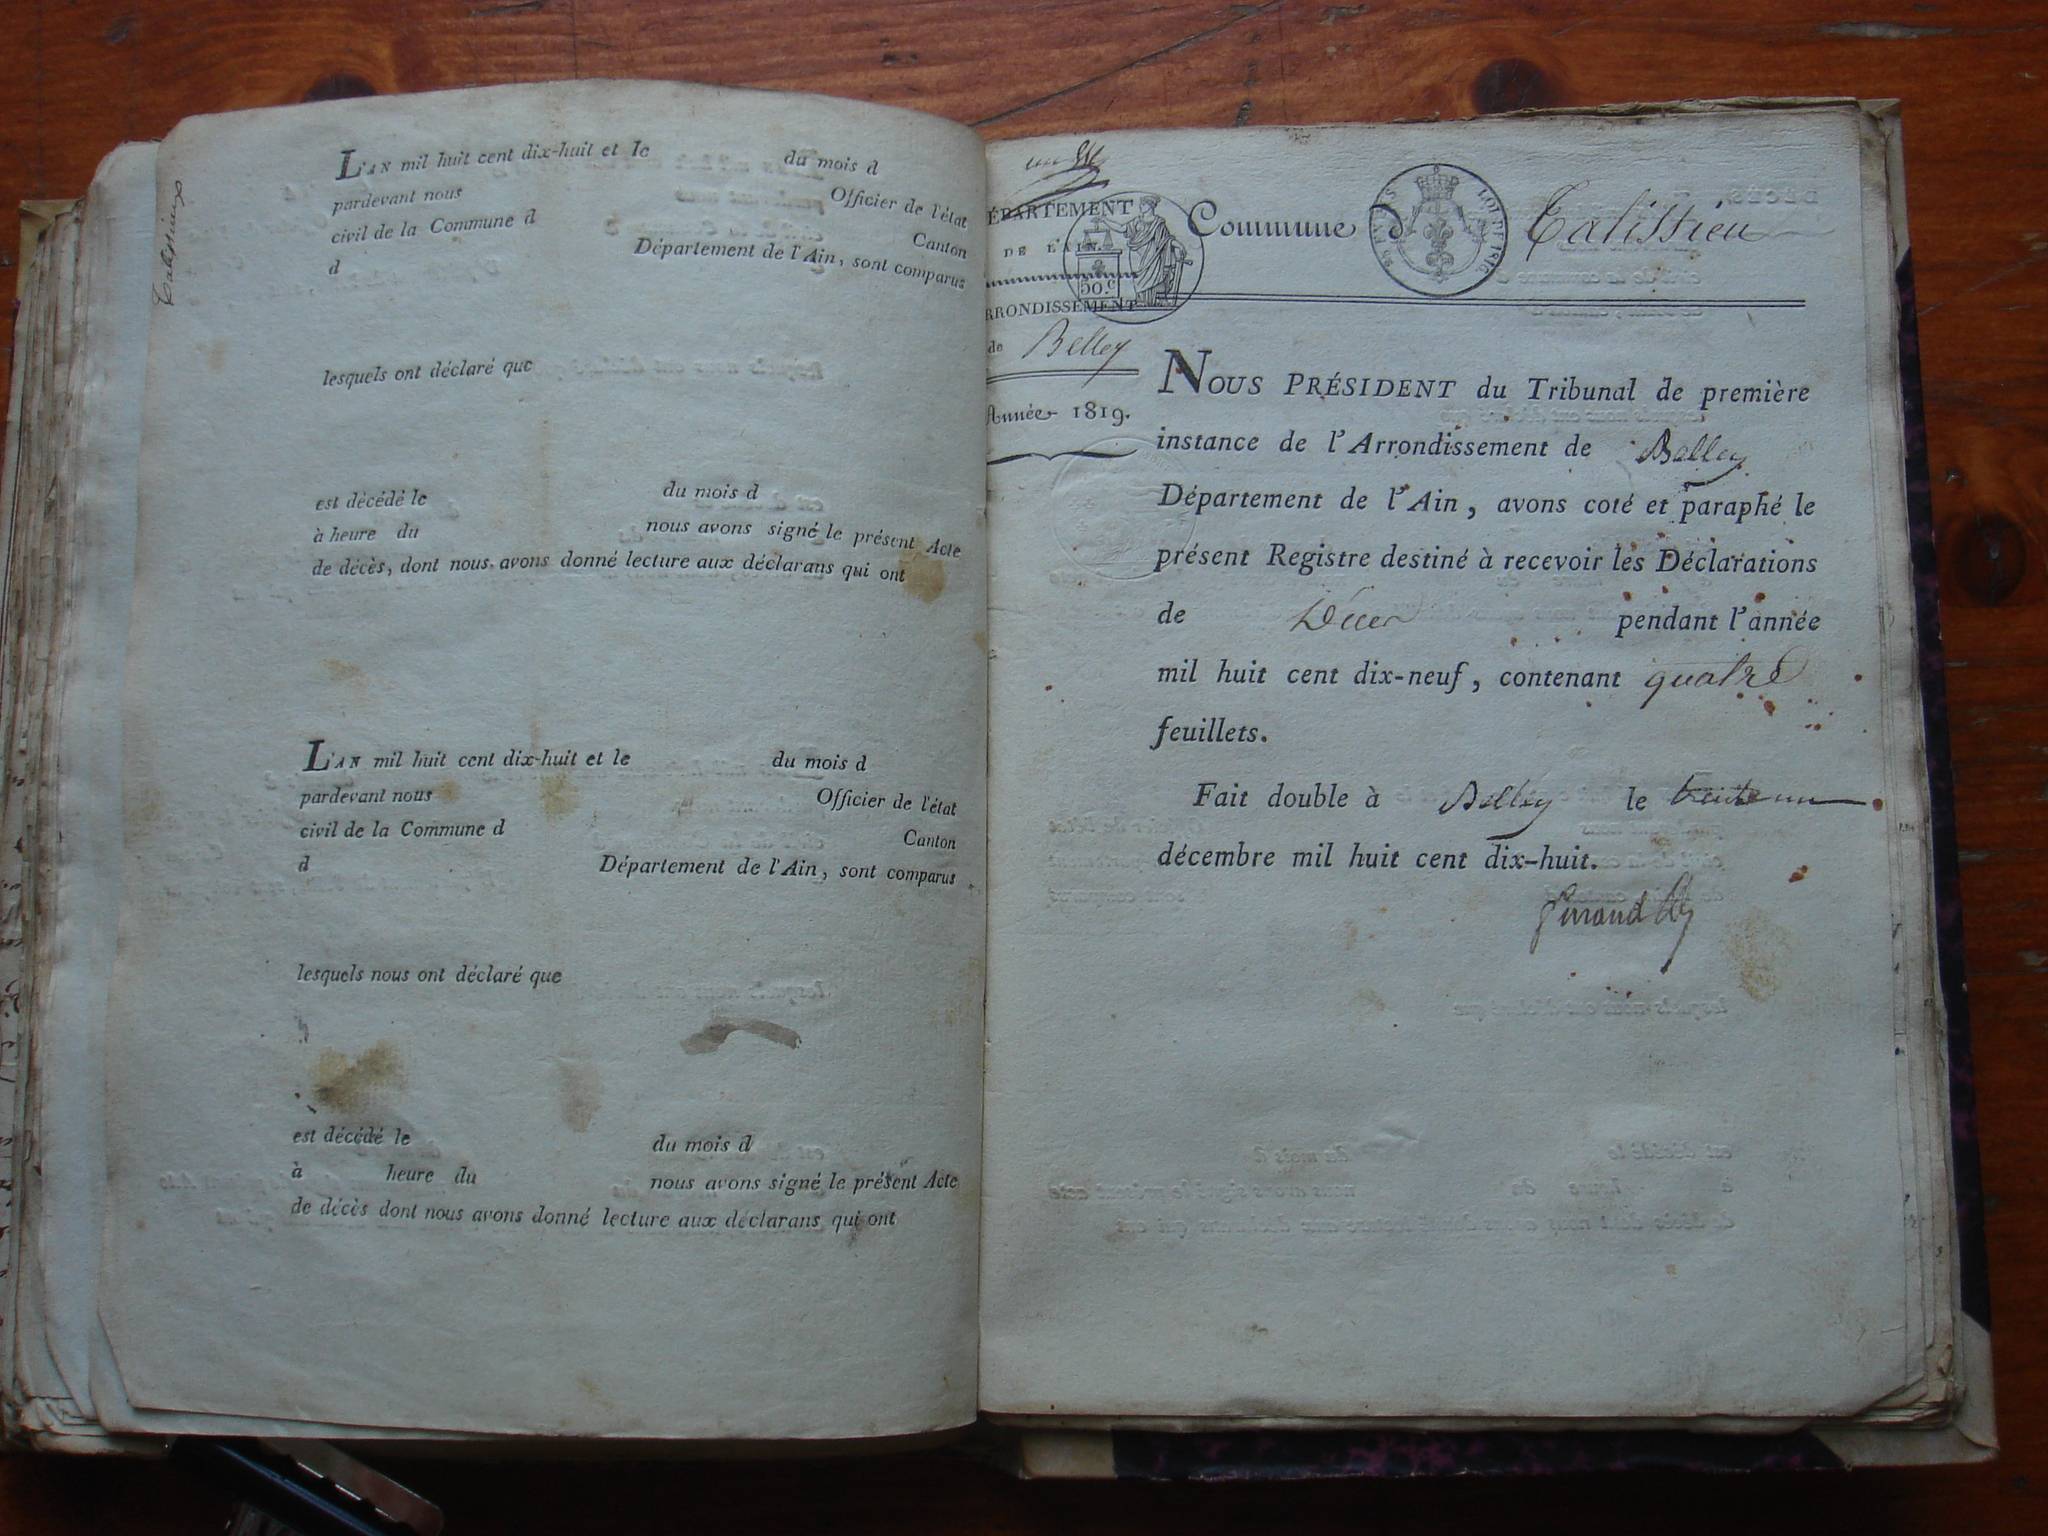 Talissieux
L'AN mil huit cent dix-huit et le du mois d
pardevant nous Officier de l'état
civil de la Commune d Canton
d Département de l'Ain, sont comparus
lesquels ont déclaré que
est décédé le du mois d
à heure du nous avons signé le présent Acte
de décès, dont nous avons donné lecture aux déclarans qui ont
L'AN mil huit cent dix-huit et le du mois d
pardevant nous Officier de l'état
civil de la Commune d Canton
d Département de l'Ain, sont comparus
lesquels nous ont déclaré que
est décédé le du mois d
à heure du nous avons signé le présent Acte
de décès dont nous avons donné lecture aux déclarans qui ont
ÉPARTEMENT
DE L'AIN.
50.c
RRONDISSEMENT
de Belley
Année 1819.
Commune d Talissieu
NOUS PRÉSIDENT du Tribunal de première
instance de l'Arrondissement de Belley
Département de l'Ain, avons coté et paraphé le
présent Registre destiné à recevoir les Déclarations
de Décès pendant l'année
mil huit cent dix-neuf, contenant quatre
feuillets.
Fait double à Belley le trente un
décembre mil huit cent dix-huit.